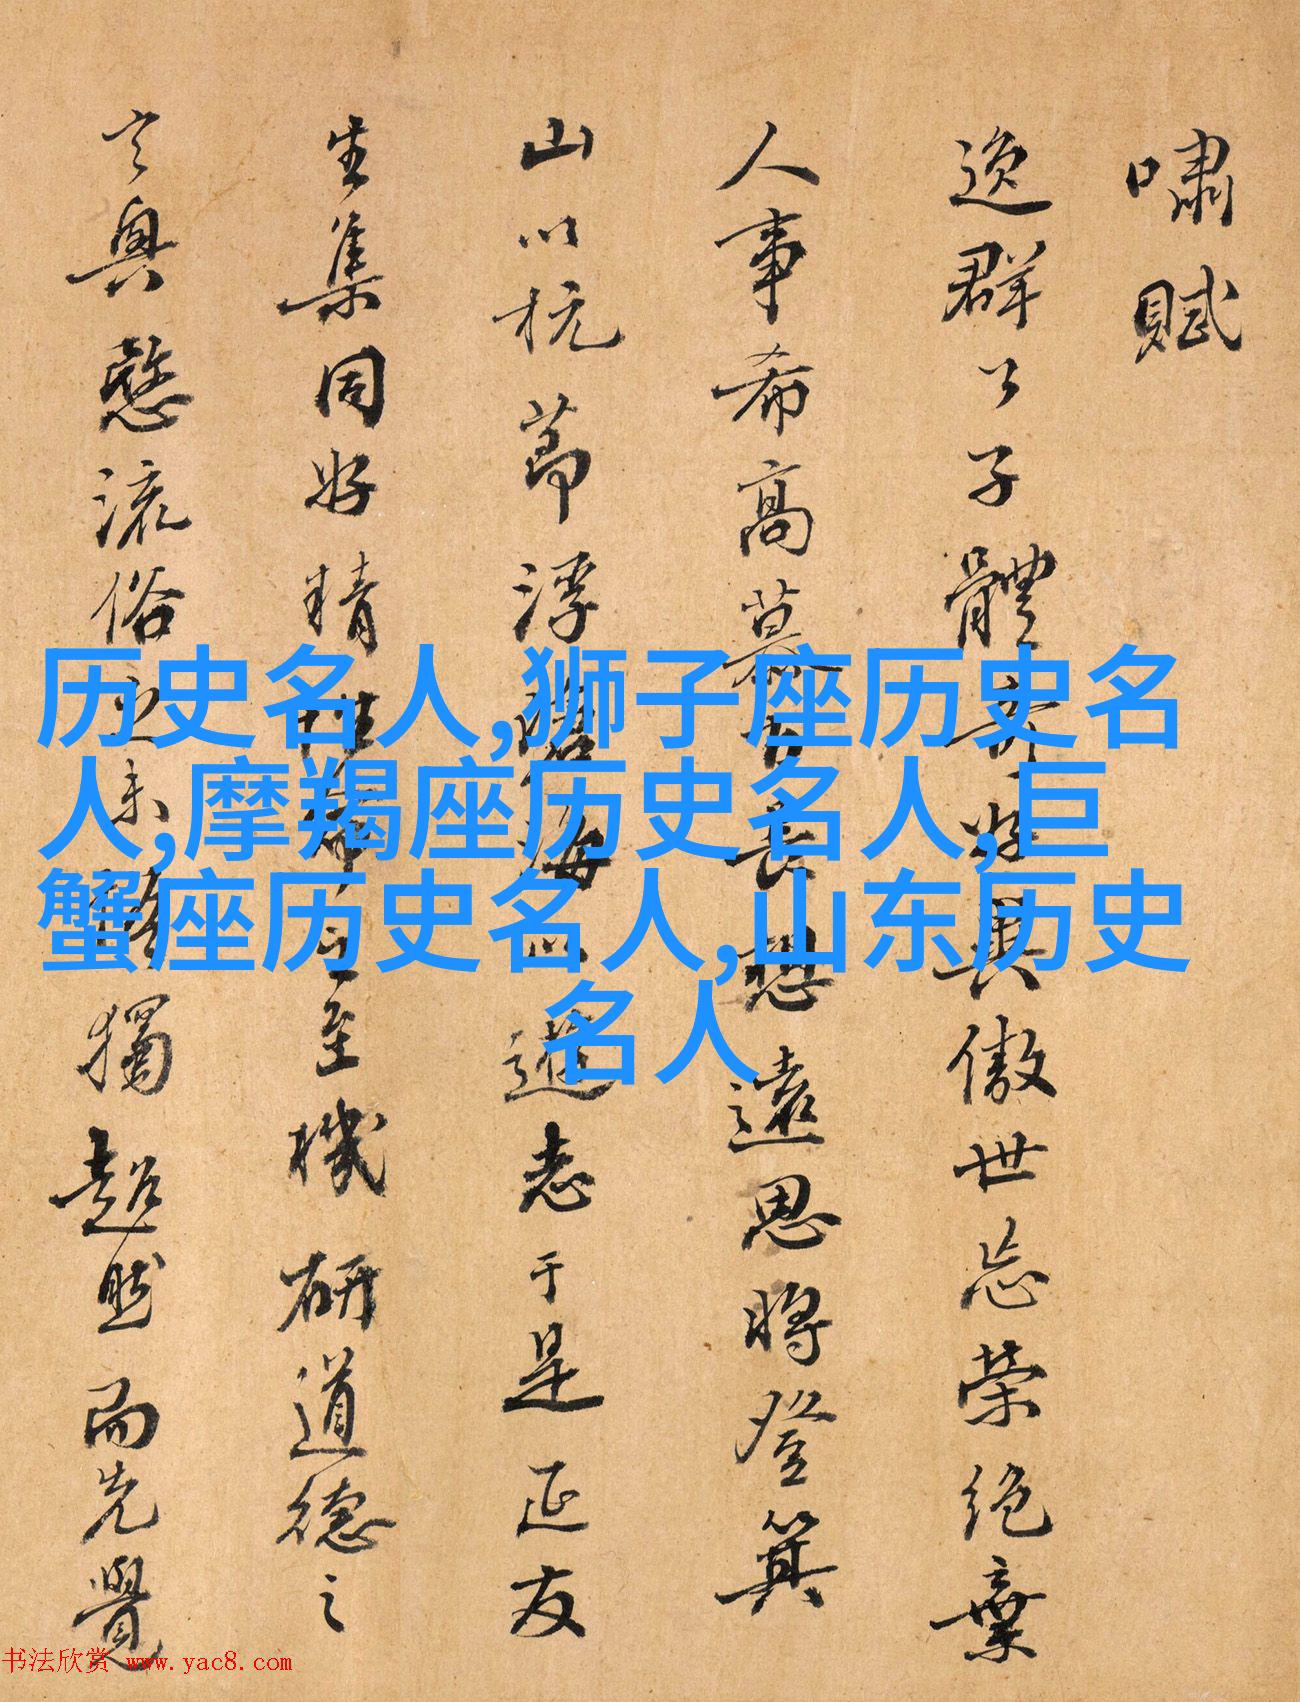 嘯賦
逸群公子體奇好異傲世忘榮絶棄
人事希高慕古長想遠思將登箕
山以抗節浮滄海以遊志于是延友
生集同好精性命之至機研道德之
玄奥愍流俗之未悟獨超然而先覺
历史名人,狮子座历史名
人,摩羯座历史名人,巨
蟹座历史名人,山东历史
名人
书法欣赏 www.yac8.com